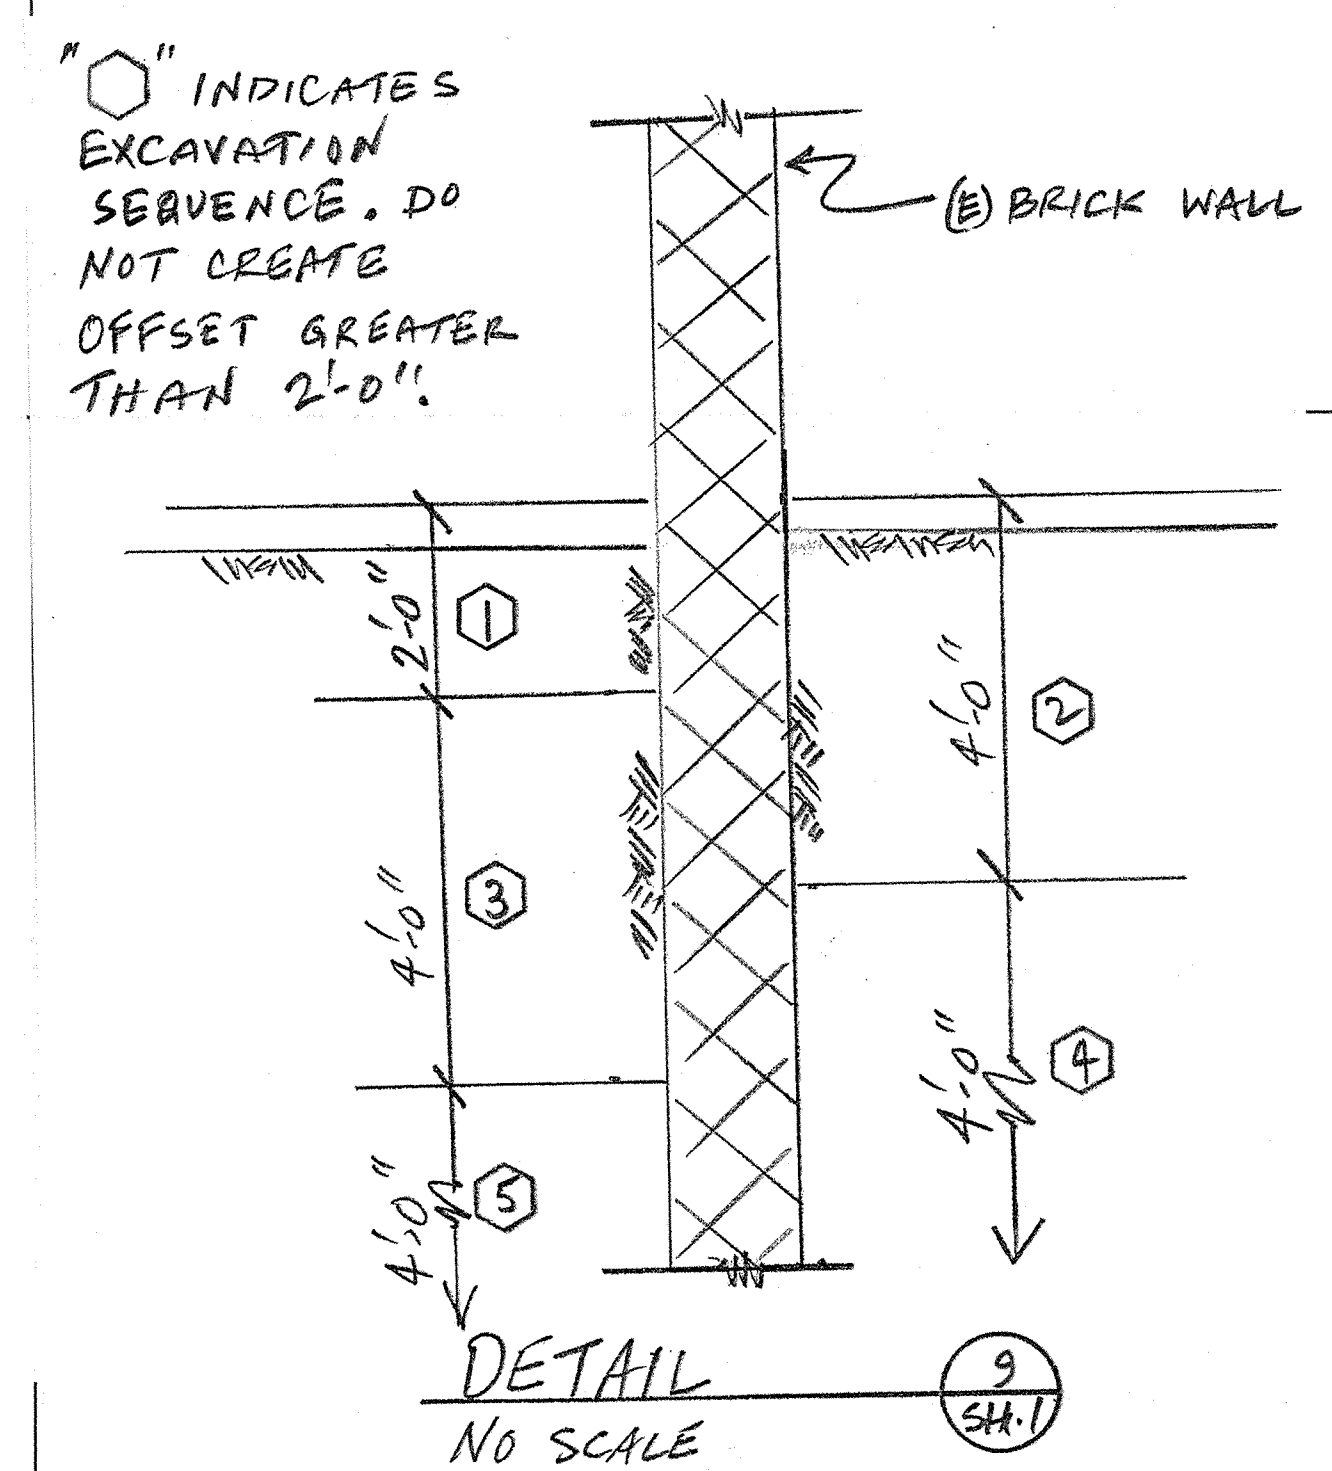 "⬡" INDICATES
EXCAVATION
SEQUENCE. DO
NOT CREATE
OFFSET GREATER
THAN 2'-0".
(E) BRICK WALL
2'-0"
1
4'-0"
2
4'-0"
3
4'-0"
4
4'-0"
5
DETAIL
NO SCALE
9
SH.1